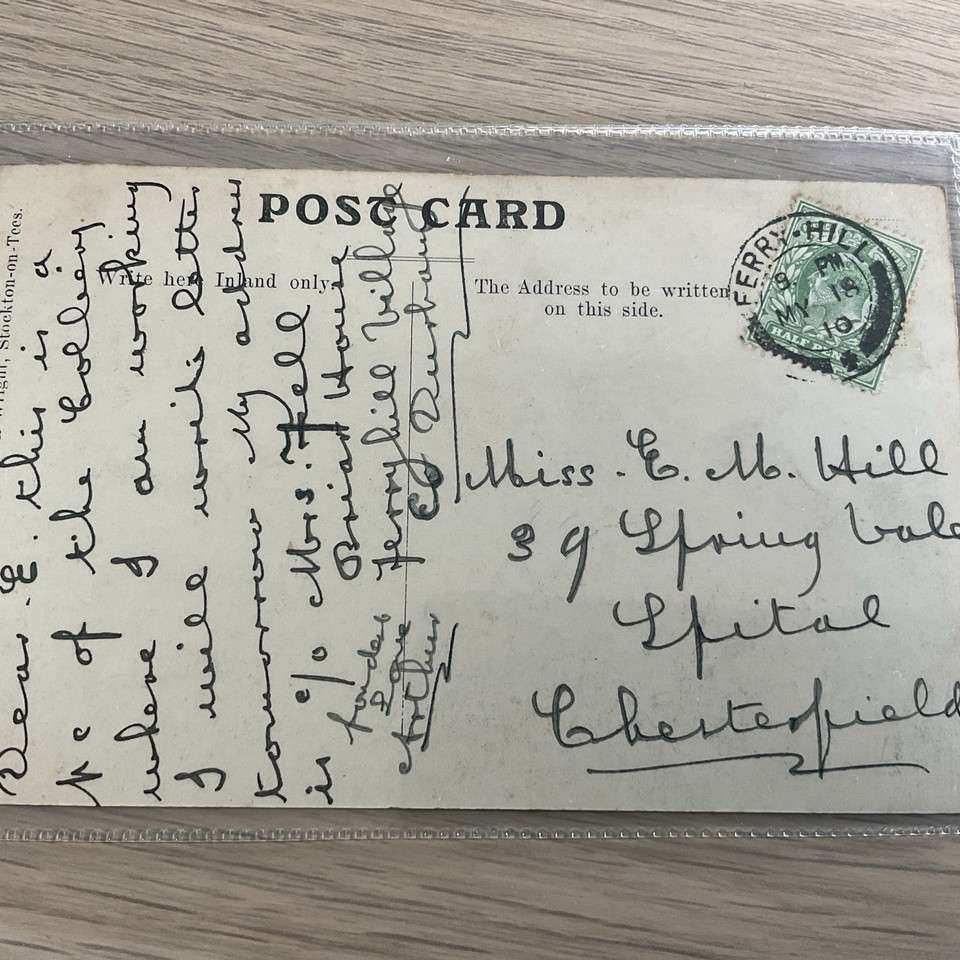 POST CARD
Write here Inland only.
The Address to be written
on this side.
Wright, Stockton-on-Tees.
FERRY·HILL
9 PM
MY 18
10
HALF
Dear E. this is a
pc of the Colliery
where I am working
I will write letter
tomorrow My address
is c/o Mrs. Fell
Briar House
Ferryhill Village
Co Durham
fondest
Love
Arthur
Miss. E. M. Hill
39 Spring Vale
Spital
Chesterfield